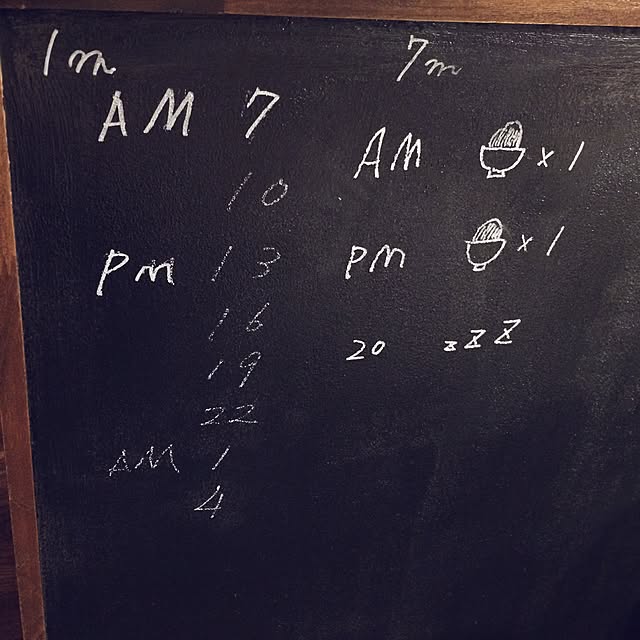 1m
AM 7
10
pm 13
16
19
22
AM 1
4
7m
AM × 1
pm × 1
20 zzz